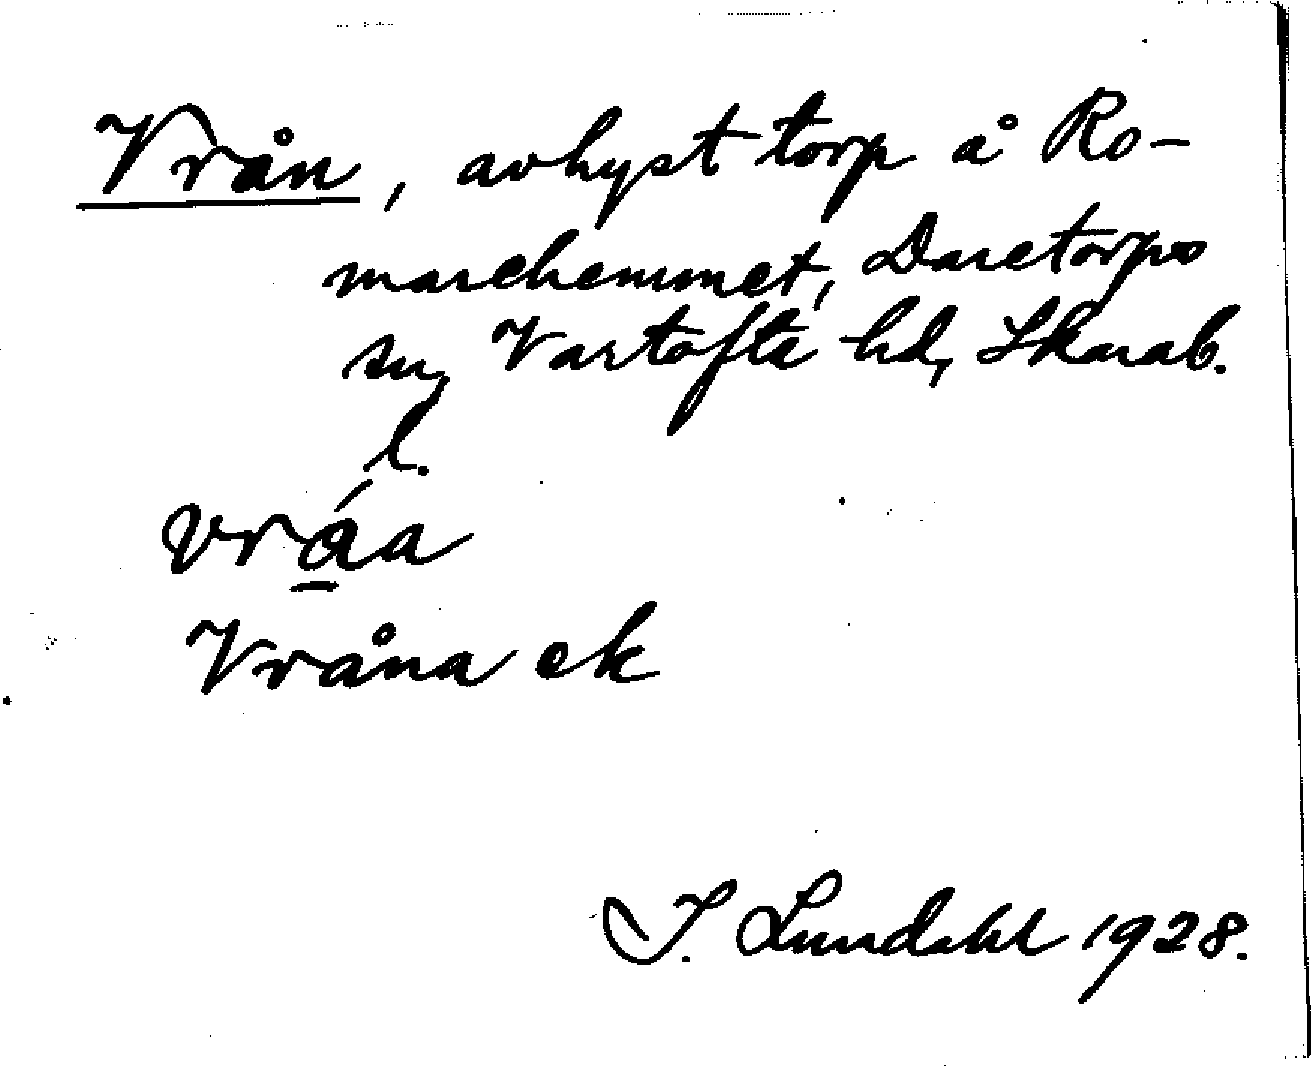 Vrån, avhyst torp å Ro-
marehemmet, Daretorps
sn, Vartofta hd, Skarab.
l.
vrá̱a
Vråna ek
I. Lundahl 1928.